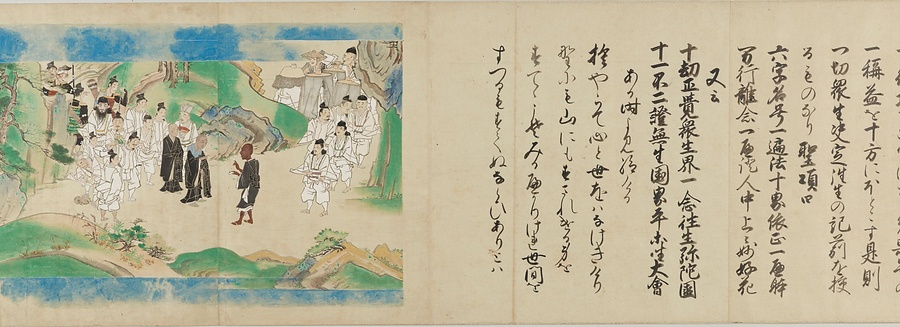 一稱益を十方にほとこす是則
一切衆生決定往生の記莂を授
るものなり 聖頌曰
六字名号一遍法十界依正一遍躰
万行離念一遍證人中上々妙好花
又云
十劫正覺衆生界一念往生弥陀國
十一不二證無生國界平等坐大會
ある時よみ給ける
捨やらて心と世をはなけきけり
野にも山にもすまれける身を
すてゝこそみるへかりけれ世間を
すつるもすてぬならひありとは